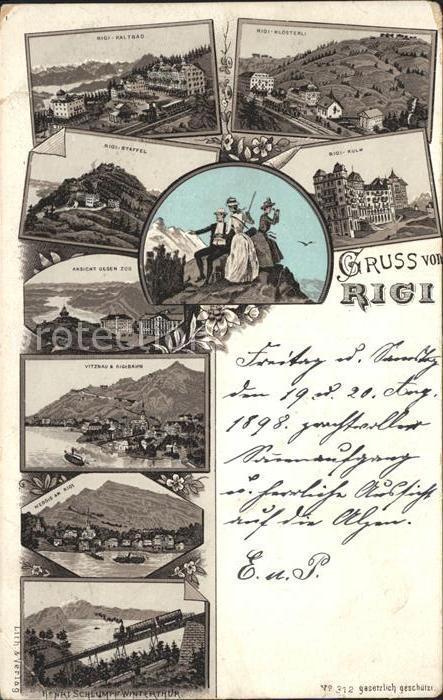 RIGI-KALTBAD
RIGI-KLÖSTERLI
RIGI-STAFFEL
RIGI-KULM
ANSICHT GEGEN ZUG
GRUSS VOM
RIGI
VITZNAU & RIGIBAHN
WEGGIS AM RIGI
Freitag u. Samstag
den 19. u. 20. Aug.
1898. prachtvoller
Sonnenaufgang
u. herrliche Aussicht
auf die Alpen.
E. u. P.
Lith. & Verlag
HENRI SCHLUMPF WINTERTHUR
No 312 gesetzlich geschützt